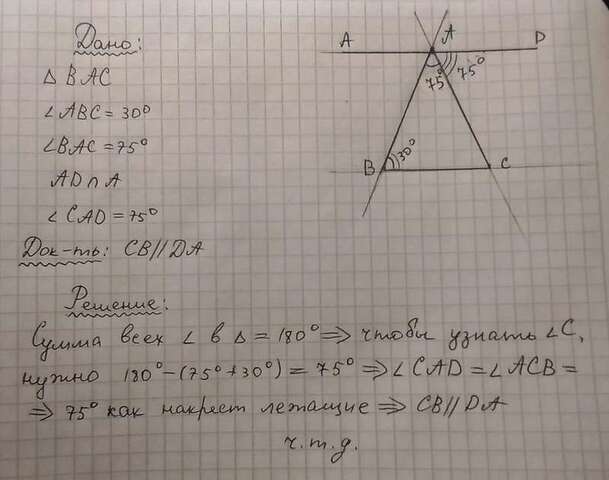 Дано:
△ BAC
∠ABC = 30°
∠BAC = 75°
AD ∩ A
∠CAD = 75°
Док-ть: CB//DA
A
A
D
75°
75°
B
30°
C
Решение:
Сумма всех ∠ в △ = 180° ⇒ чтобы узнать ∠C,
нужно 180° - (75° + 30°) = 75° ⇒ ∠CAD = ∠ACB =
⇒ 75° как накрест лежащие ⇒ CB//DA
ч.т.д.